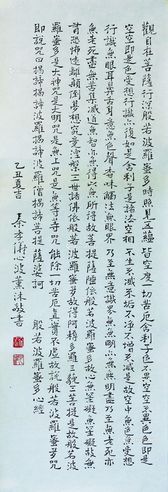 觀自在菩薩行深般若波羅蜜多時照見五蘊皆空度一切苦厄舍利子色不異空空不異色色即是
空空即是色受想行識亦復如是舍利子是諸法空相不生不滅不垢不淨不增不減是故空中無色無受想
行識無眼耳鼻舌身意無色聲香味觸法無眼界乃至無意識界無無明亦無無明盡乃至無老死亦
無老死盡無苦集滅道無智亦無得以無所得故菩提薩埵依般若波羅蜜多故心無罣礙無罣礙故無
有恐怖遠離顛倒夢想究竟涅槃三世諸佛依般若波羅蜜多故得阿耨多羅三藐三菩提故知般若波
羅蜜多是大神咒是大明咒是無上咒是無等等咒能除一切苦真實不虛故說般若波羅蜜多咒
即說咒曰揭諦揭諦波羅揭諦波羅僧揭諦菩提薩婆訶 般若波羅蜜多心經
乙丑夏 秦孝儀心波熏沐敬書